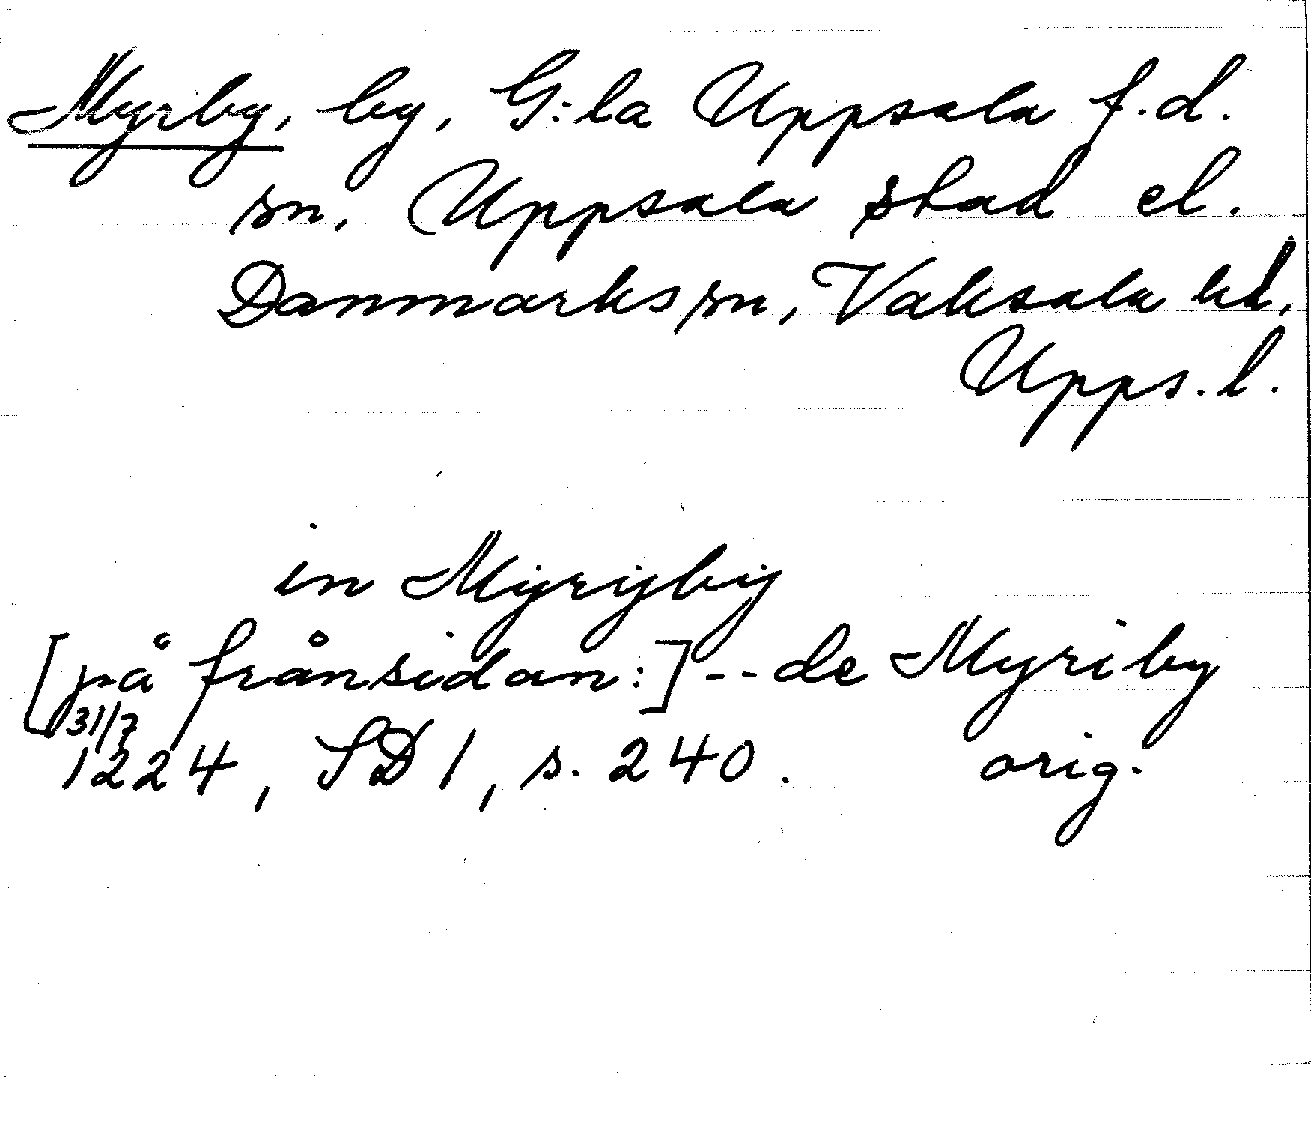 Myrby, by, G:la Uppsala f.d.
sn, Uppsala stad el.
Danmarks sn, Vaksala hd,
Upps. l.
in Myryby
[på frånsidan:] -- de Myriby
31/7
1224, SD 1, s. 240. orig.